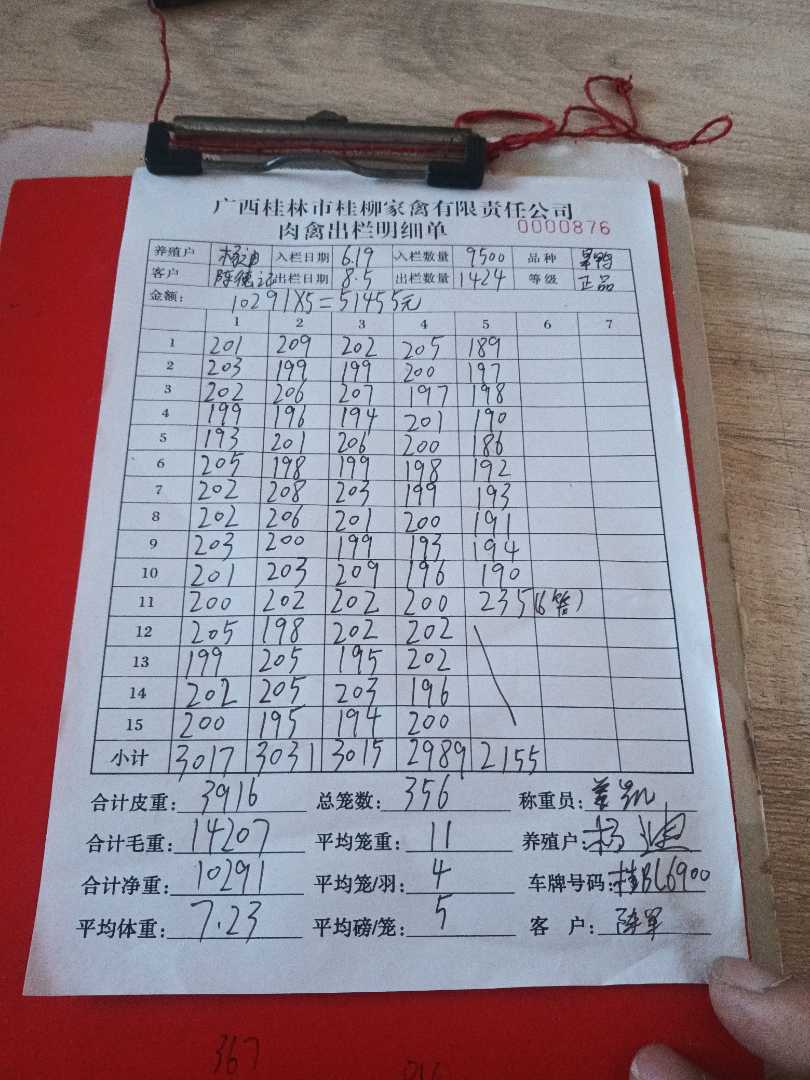 广西桂林市桂柳家禽有限责任公司
肉禽出栏明细单 0000876
养殖户 杨迪 入栏日期 6.19 入栏数量 9500 品种
客户 陈德 出栏日期 8.5 出栏数量 1424 等级 正品
金额: 10291X5=51455元
1 2 3 4 5 6 7
1 201 209 202 205 189
2 203 199 199 200 197
3 202 206 207 197 198
4 199 196 194 201 190
5 193 201 206 200 186
6 205 198 199 198 192
7 202 208 203 199 193
8 202 206 201 200 191
9 203 200 199 193 194
10 201 203 209 196 190
11 200 202 202 200 235(6笼)
12 205 198 202 202
13 199 205 195 202
14 202 205 203 196
15 200 195 194 200
小计 3017 3031 3015 2989 2155
合计皮重: 3916 总笼数: 356 称重员:
合计毛重: 14207 平均笼重: 11 养殖户: 杨迪
合计净重: 10291 平均笼/羽: 4 车牌号码: 桂BL6900
平均体重: 7.23 平均磅/笼: 5 客 户: 陈军
367